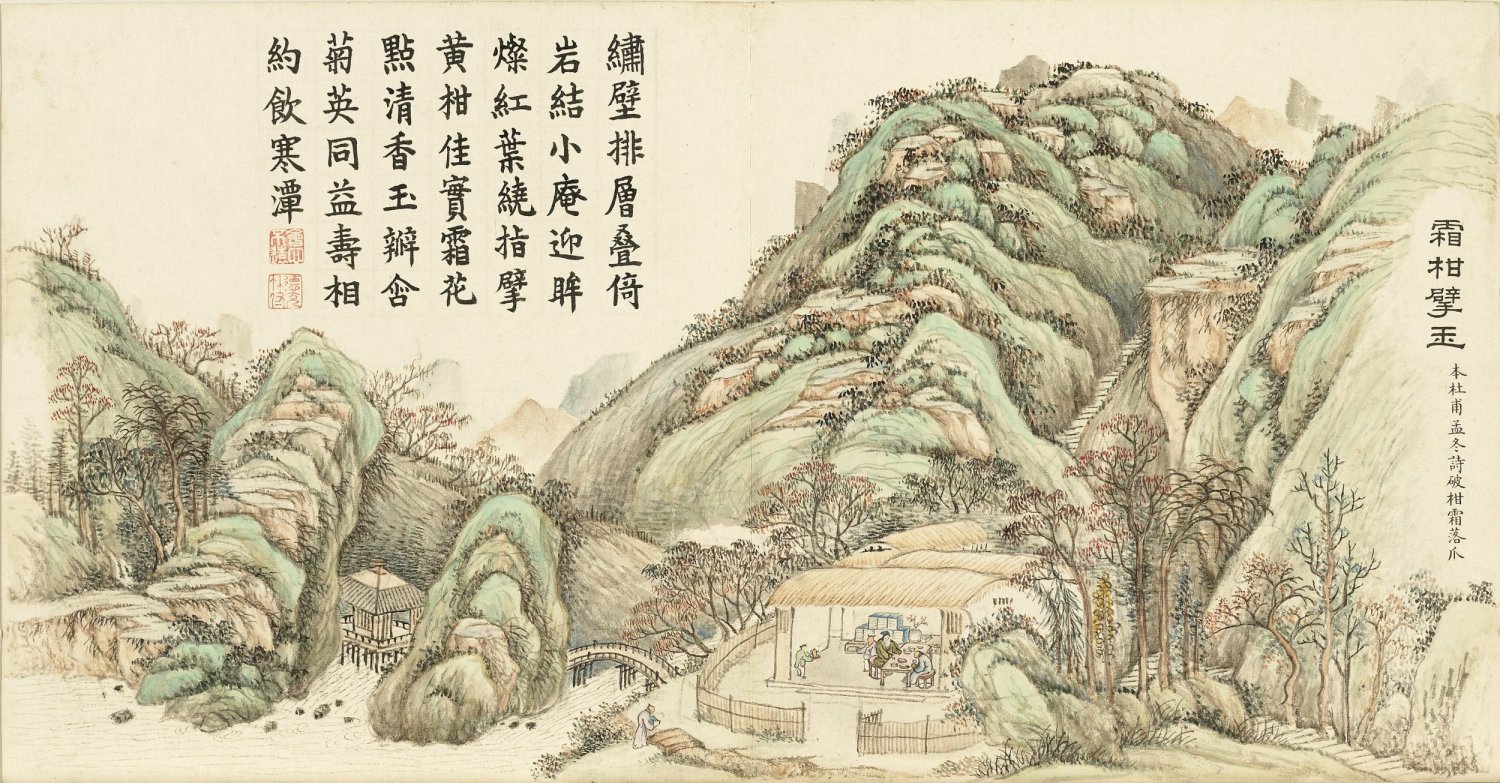 霜柑擘玉
本杜甫孟冬詩破柑霜落爪
繡壁排層叠倚
岩結小庵迎眸
燦紅葉繞指擘
黄柑佳實霜花
點清香玉瓣含
菊英同益壽相
約飲寒潭